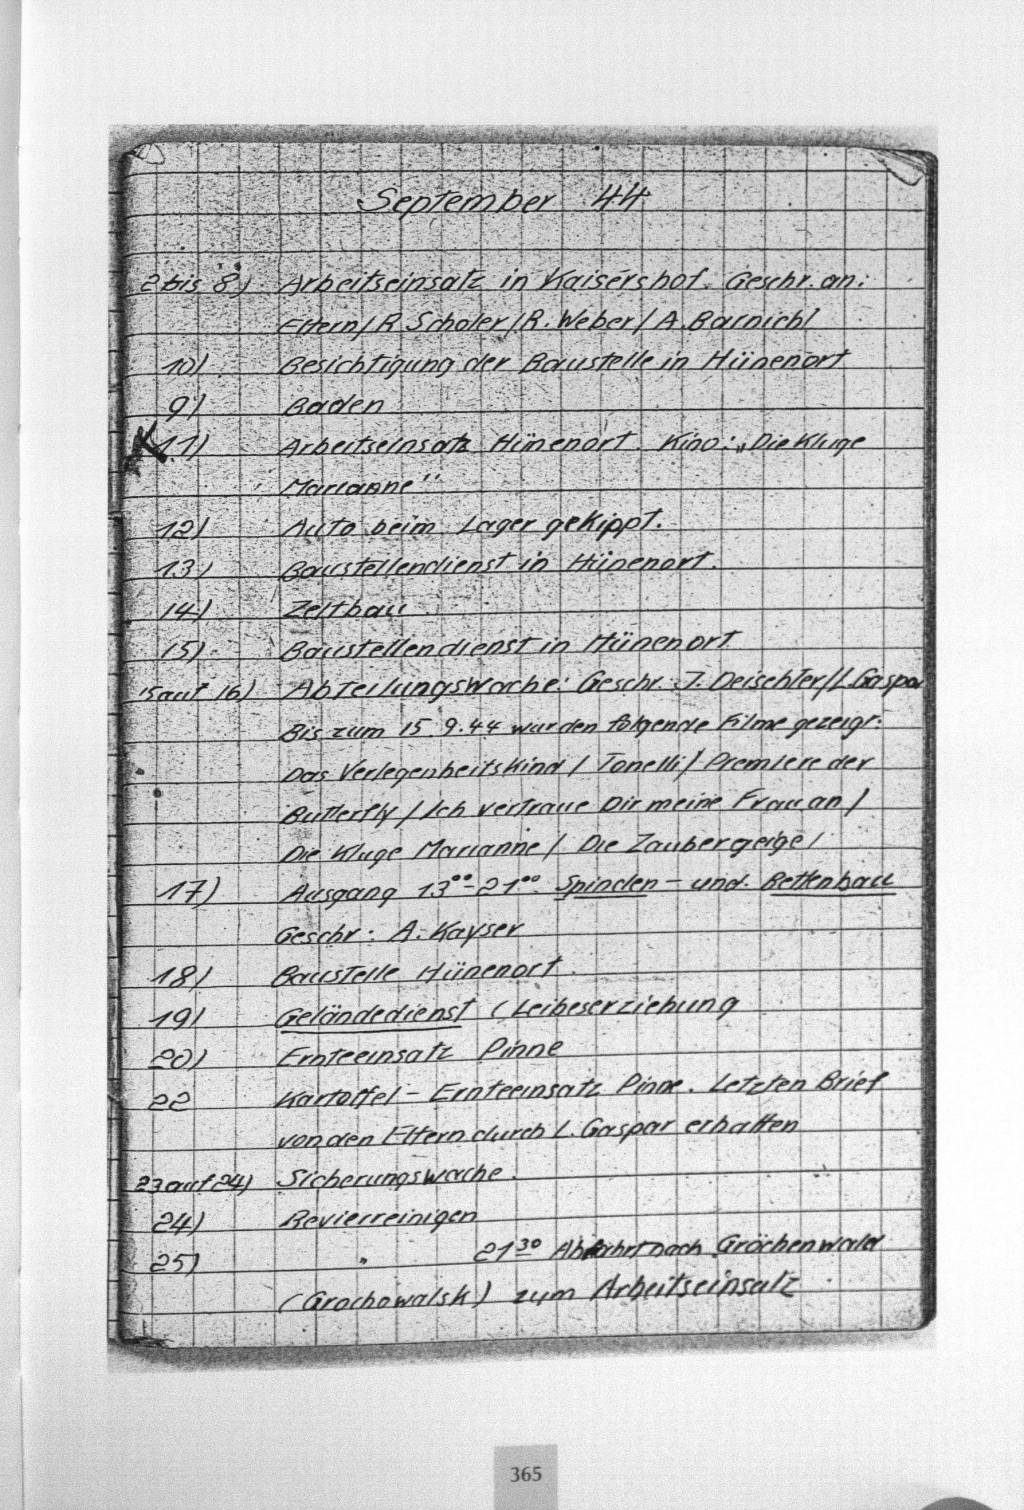 September 44
2 bis 8) Arbeitseinsatz in Kaisershof. Geschr. an:
Eltern/R Scholer/R. Weber/A. Barnickl
10) Besichtigung der Baustelle in Hünenort
9) Baden
11) Arbeitseinsatz Hünenort. Kino: „Die Kluge
Marianne"
12) Auto beim Lager gekippt.
13) Baustellendienst in Hünenort.
14) Zeltbau
15) Baustellendienst in Hünenort
15 auf 16) Abteilungswache: Geschr. J. Deischler/L. Gaspar
Bis zum 15.9.44 wurden folgende Filme gezeigt:
Das Verlegenheitskind/Tonelli/Premiere der
Butterfly/Ich vertraue Dir meine Frau an/
Die Kluge Marianne/Die Zaubergeige/
17) Ausgang 13⁰⁰-21⁰⁰ Spinden- und Bettenbau
Geschr: A. Kayser
18) Baustelle Hünenort.
19) Geländedienst (Leibeserziehung
20) Ernteeinsatz Pinne
22 Kartoffel-Ernteeinsatz Pinne. Letzten Brief
von den Eltern durch L. Gaspar erhalten
23 auf 24) Sicherungswache.
24) Revierreinigen
25) " 21³⁰ Abfahrt nach Gröchenwald
(Grochowalsk) zum Arbeitseinsatz
365